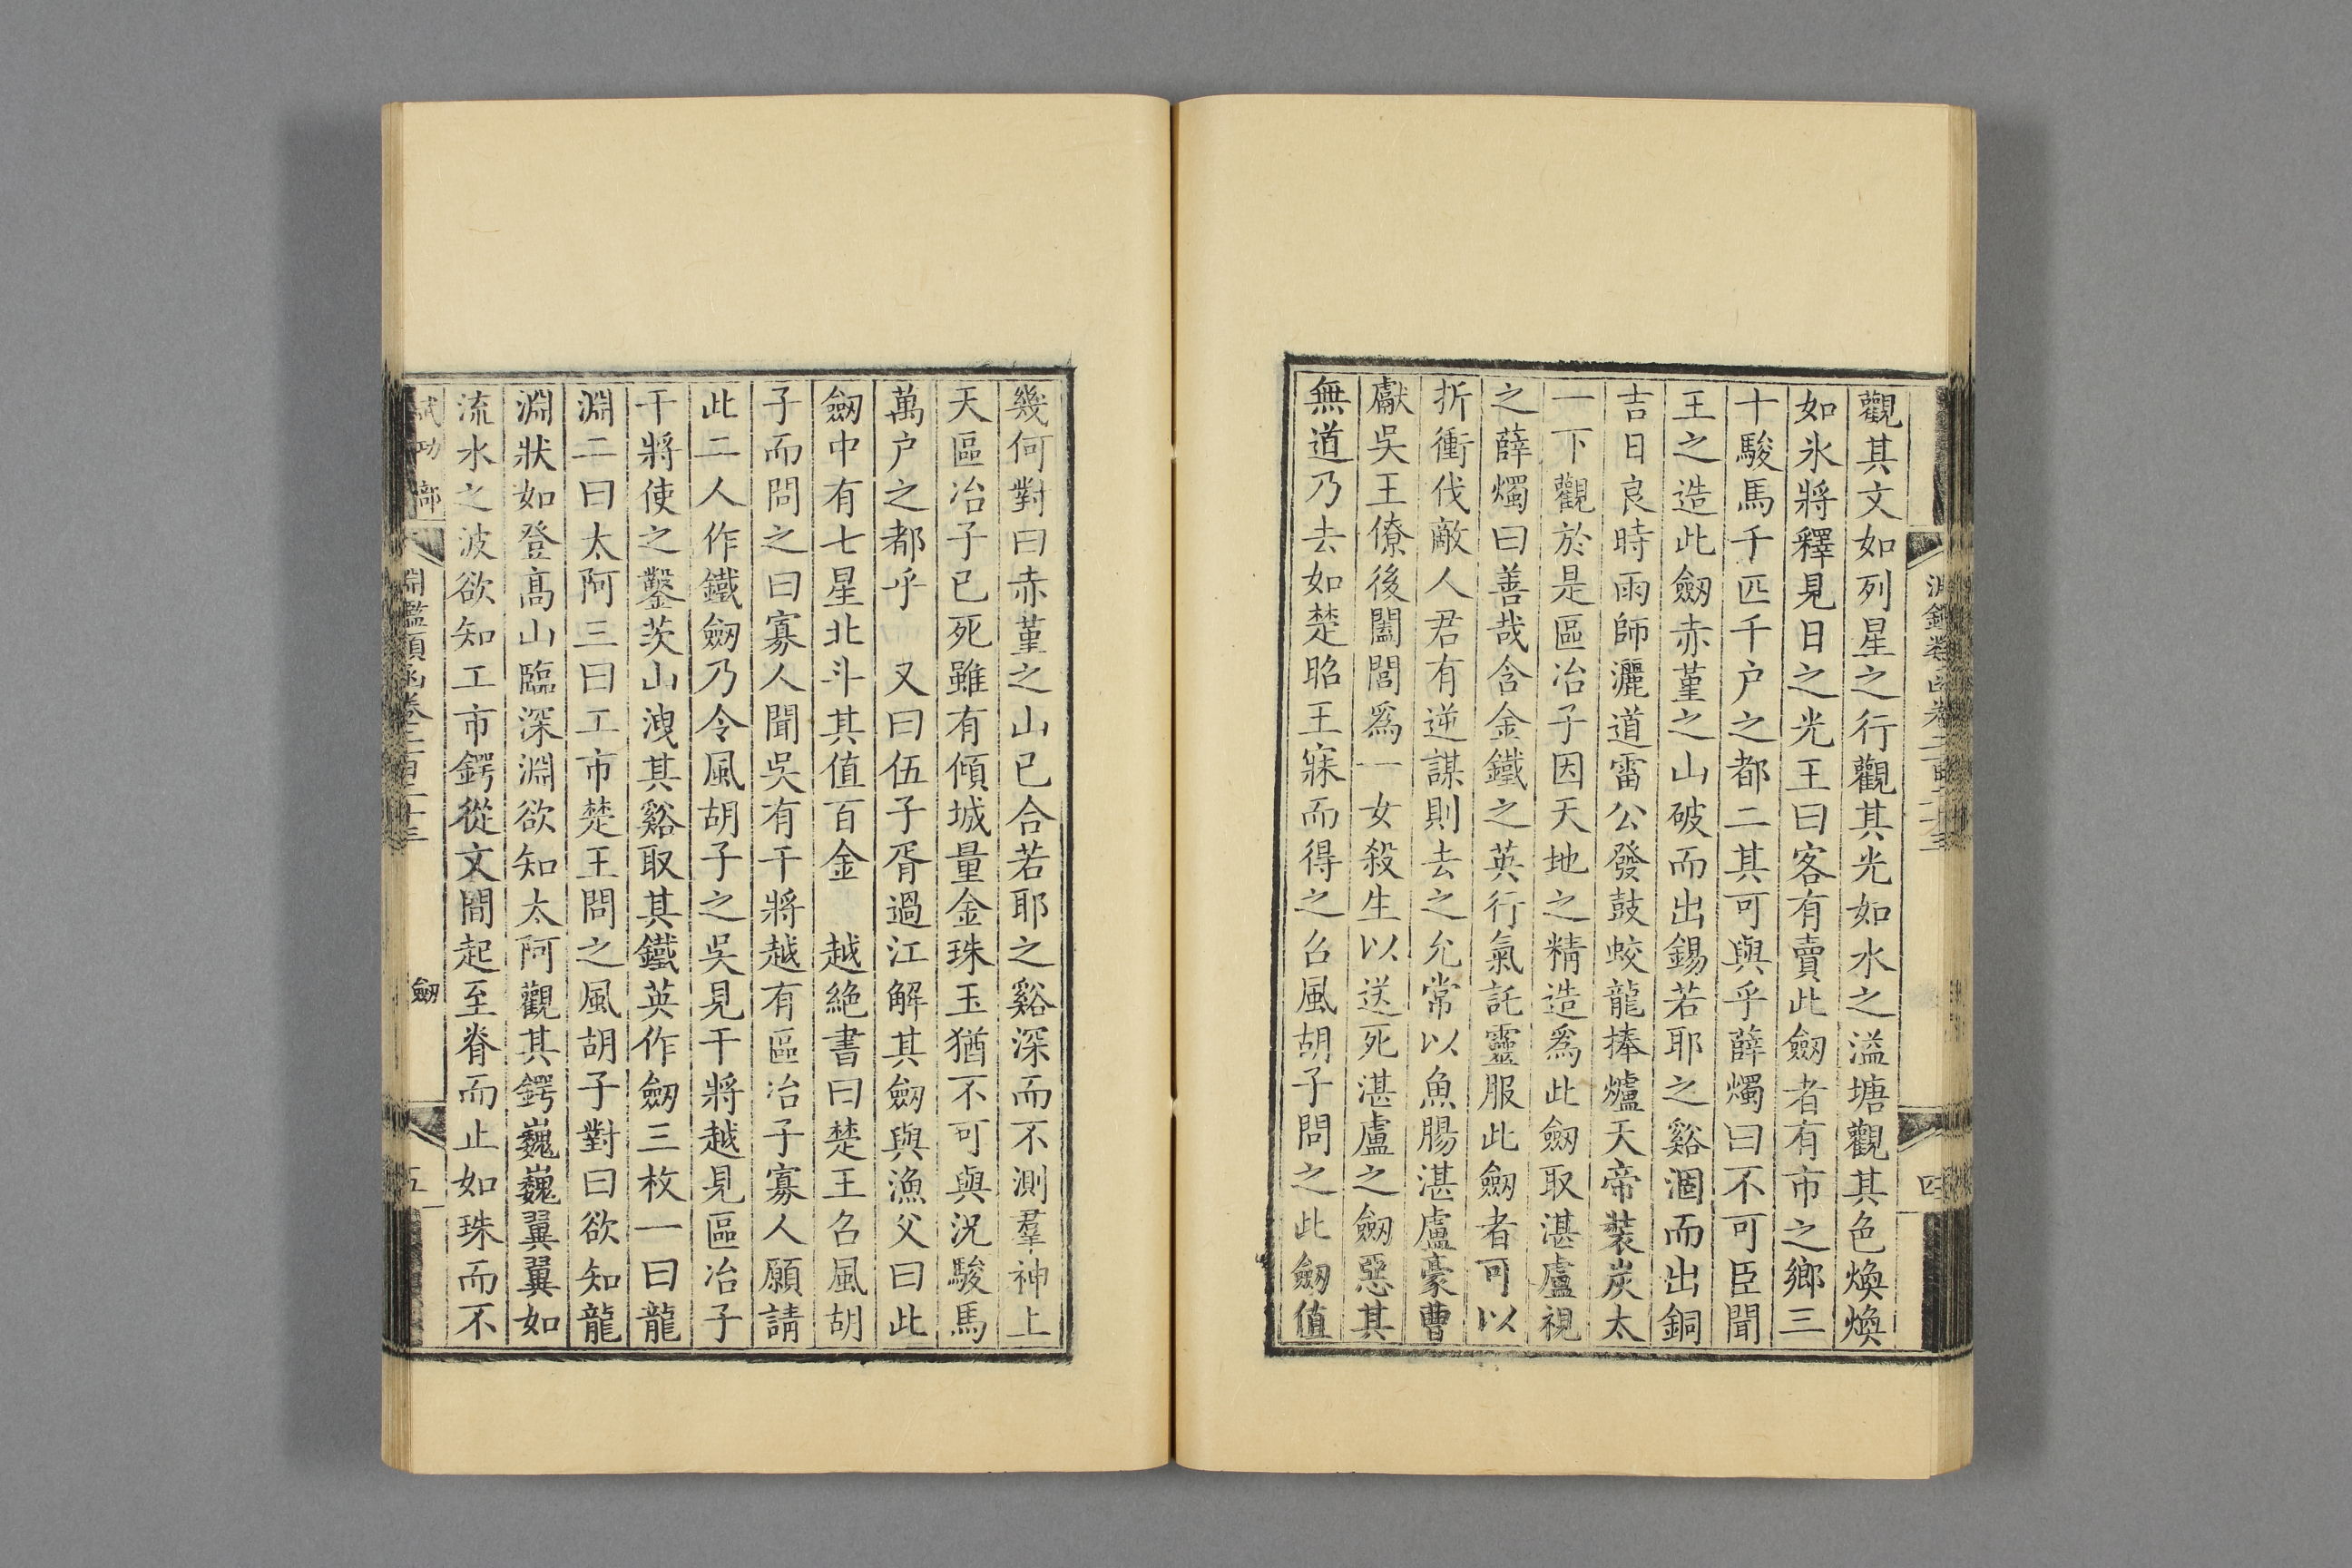 觀其文如列星之行觀其光如水之溢塘觀其色煥煥
如氷將釋見日之光王曰客有賣此劔者有市之鄉三
十駿馬千匹千户之都二其可與乎薛燭曰不可臣聞
王之造此劔赤堇之山破而出錫若耶之谿涸而出銅
吉日良時雨師灑道雷公發鼓蛟龍捧爐天帝裝炭太
一下觀於是區冶子因天地之精造爲此劔取湛盧視
之薛燭曰善哉含金鐵之英行氣託靈服此劔者可以
折衝伐敵人君有逆謀則去之允常以魚腸湛盧豪曹
獻吳王僚後闔閭爲一女殺生以送死湛盧之劔惡其
無道乃去如楚昭王寐而得之召風胡子問之此劔值
幾何對曰赤堇之山已合若耶之谿深而不測羣神上
天區冶子已死雖有傾城量金珠玉猶不可與況駿馬
萬户之都乎　又曰伍子胥過江解其劔與漁父曰此
劔中有七星北斗其值百金　越絶書曰楚王召風胡
子而問之曰寡人聞吳有干將越有區冶子寡人願請
此二人作鐵劔乃令風胡子之吳見干將越見區冶子
干將使之鑿茨山洩其谿取其鐵英作劔三枚一曰龍
淵二曰太阿三曰工市楚王問之風胡子對曰欲知龍
淵狀如登髙山臨深淵欲知太阿觀其鍔巍巍翼翼如
流水之波欲知工市鍔從文間起至脊而止如珠而不
武功部
淵鑑類函卷二百二十三
劔
五